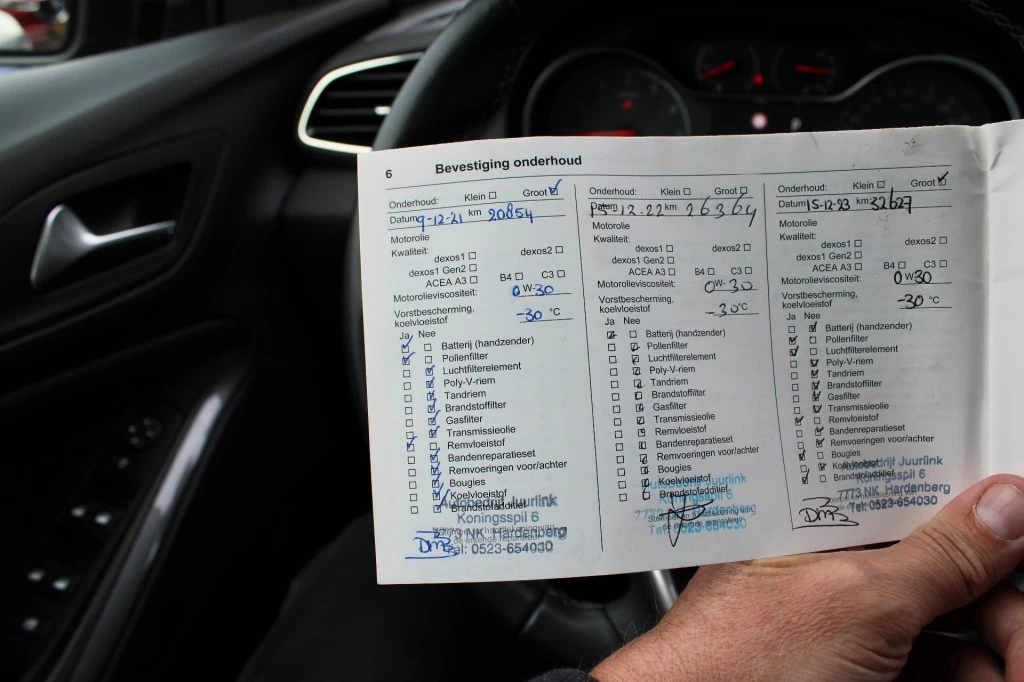 6 Bevestiging onderhoud
Onderhoud: Klein Groot
Datum 9-12-21 km 20854
Motorolie
Kwaliteit:
dexos1 dexos2
dexos1 Gen2
ACEA A3 B4 C3
Motorolieviscositeit: 0W-30
Vorstbescherming,
koelvloeistof -30 °C
Ja Nee
Batterij (handzender)
Pollenfilter
Luchtfilterelement
Poly-V-riem
Tandriem
Brandstoffilter
Gasfilter
Transmissieolie
Remvloeistof
Bandenreparatieset
Remvoeringen voor/achter
Bougies
Koelvloeistof
Brandstofadditief
Autobedrijf Juurlink
Koningsspil 6
7773 NK Hardenberg
Tel: 0523-654030
Onderhoud: Klein Groot
Datum 15-12-22 km 26364
Motorolie
Kwaliteit:
dexos1 dexos2
dexos1 Gen2
ACEA A3 B4 C3
Motorolieviscositeit: 0W-30
Vorstbescherming,
koelvloeistof -30 °C
Ja Nee
Batterij (handzender)
Pollenfilter
Luchtfilterelement
Poly-V-riem
Tandriem
Brandstoffilter
Gasfilter
Transmissieolie
Remvloeistof
Bandenreparatieset
Remvoeringen voor/achter
Bougies
Koelvloeistof
Brandstofadditief
Autobedrijf Juurlink
Koningsspil 6
7773 NK Hardenberg
Tel: 0523-654030
Onderhoud: Klein Groot
Datum 15-12-23 km 32627
Motorolie
Kwaliteit:
dexos1 dexos2
dexos1 Gen2
ACEA A3 B4 C3
Motorolieviscositeit: 0W30
Vorstbescherming,
koelvloeistof -30 °C
Ja Nee
Batterij (handzender)
Pollenfilter
Luchtfilterelement
Poly-V-riem
Tandriem
Brandstoffilter
Gasfilter
Transmissieolie
Remvloeistof
Bandenreparatieset
Remvoeringen voor/achter
Bougies
Koelvloeistof
Brandstofadditief
Autobedrijf Juurlink
Koningsspil 6
7773 NK Hardenberg
Tel: 0523-654030